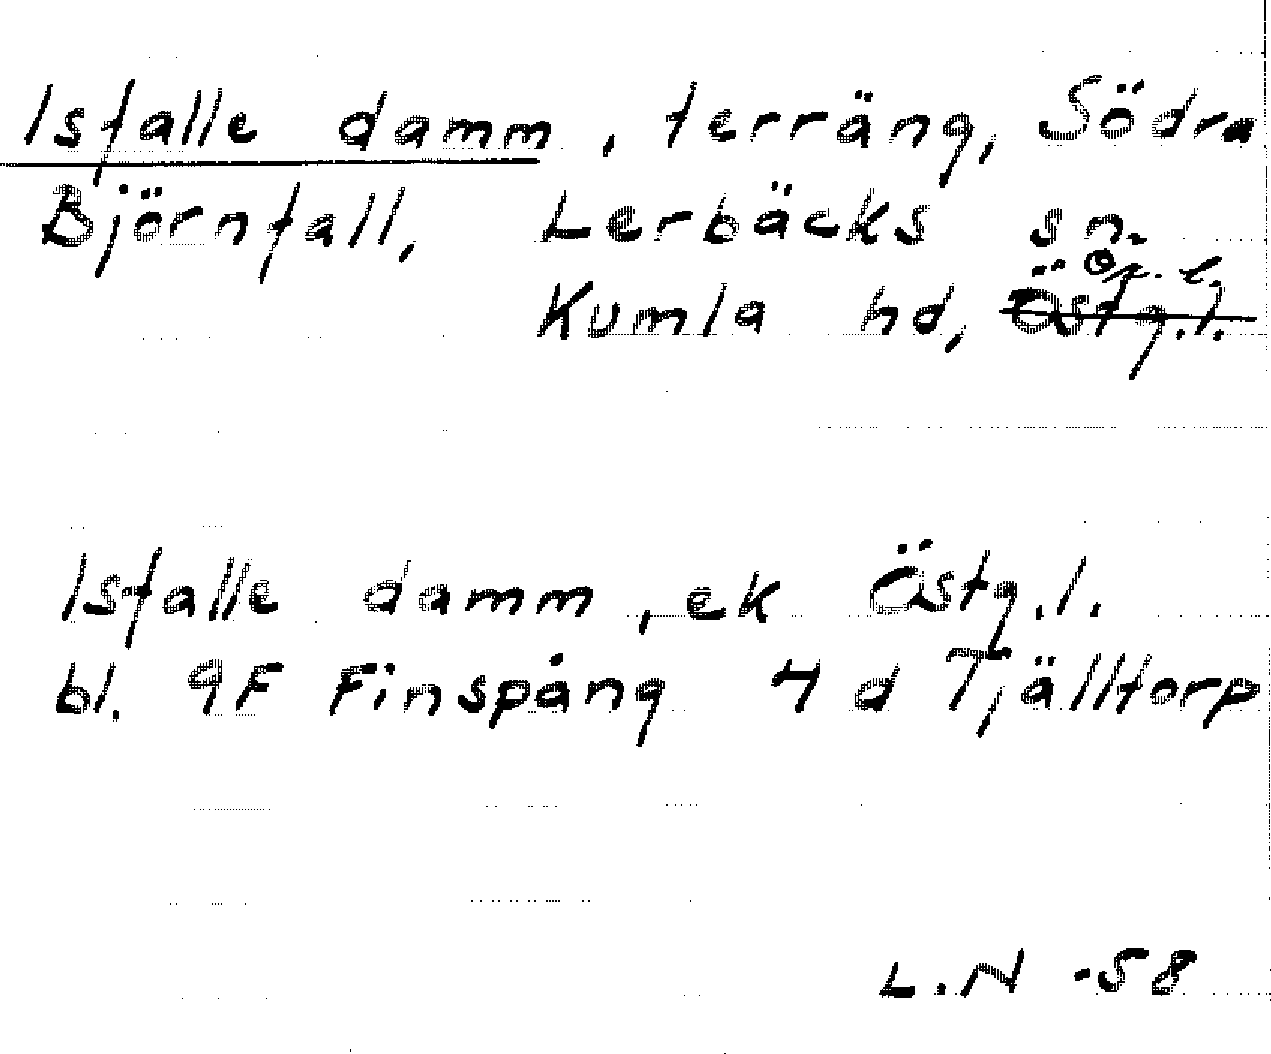 Isfalle damm, terräng, Södra
Björnfall, Lerbäcks sn.
Kumla hd, Ör. l.
Östg.l.
Isfalle damm, ek Östg.l.
bl. 9F Finspång 4 d Tjälltorp
L.N -58